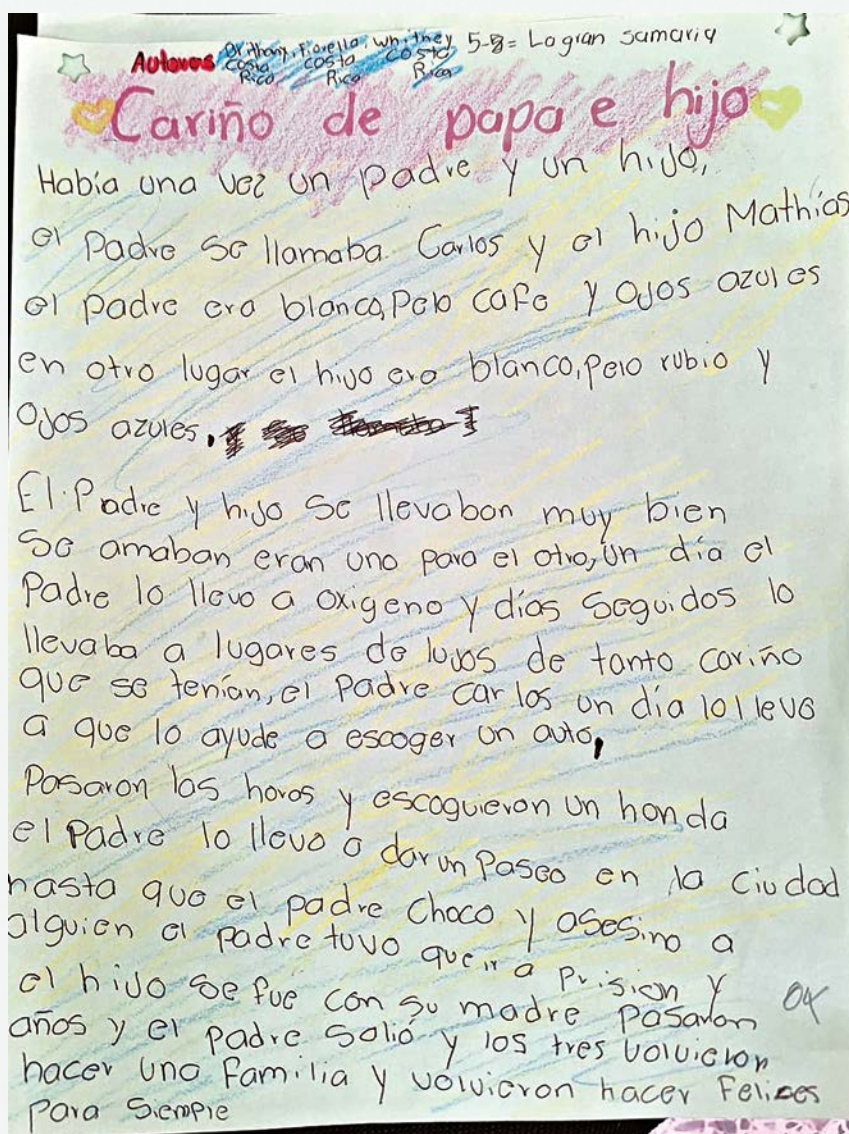 Autores Brithany, Fiorella, Whitney 5-8= La gran samaria
Costa Rica Costa Rica Costa Rica
Cariño de papa e hijo
Había una vez un padre y un hijo,
el Padre se llamaba Carlos y el hijo Mathías
el padre era blanco, Pelo cafe y ojos azules
en otro lugar el hijo era blanco, pelo rubio y
Ojos azules.
El Padre y hijo se llevaban muy bien
Se amaban eran uno para el otro, un día el
Padre lo llevo a oxigeno y días seguidos lo
llevaba a lugares de lujos de tanto cariño
que se tenían, el Padre carlos un día lo llevo
a que lo ayude a escoger un auto,
Pasaron las horas y escoguieron un honda
el Padre lo llevo a dar un Paseo en la ciudad
hasta que el padre choco y asesino a
alguien el padre tuvo que ir a prision y
el hijo se fue con su madre pasaron
años y el padre salió y los tres volvieron
hacer una familia y volvieron hacer felices
para siempre
OK